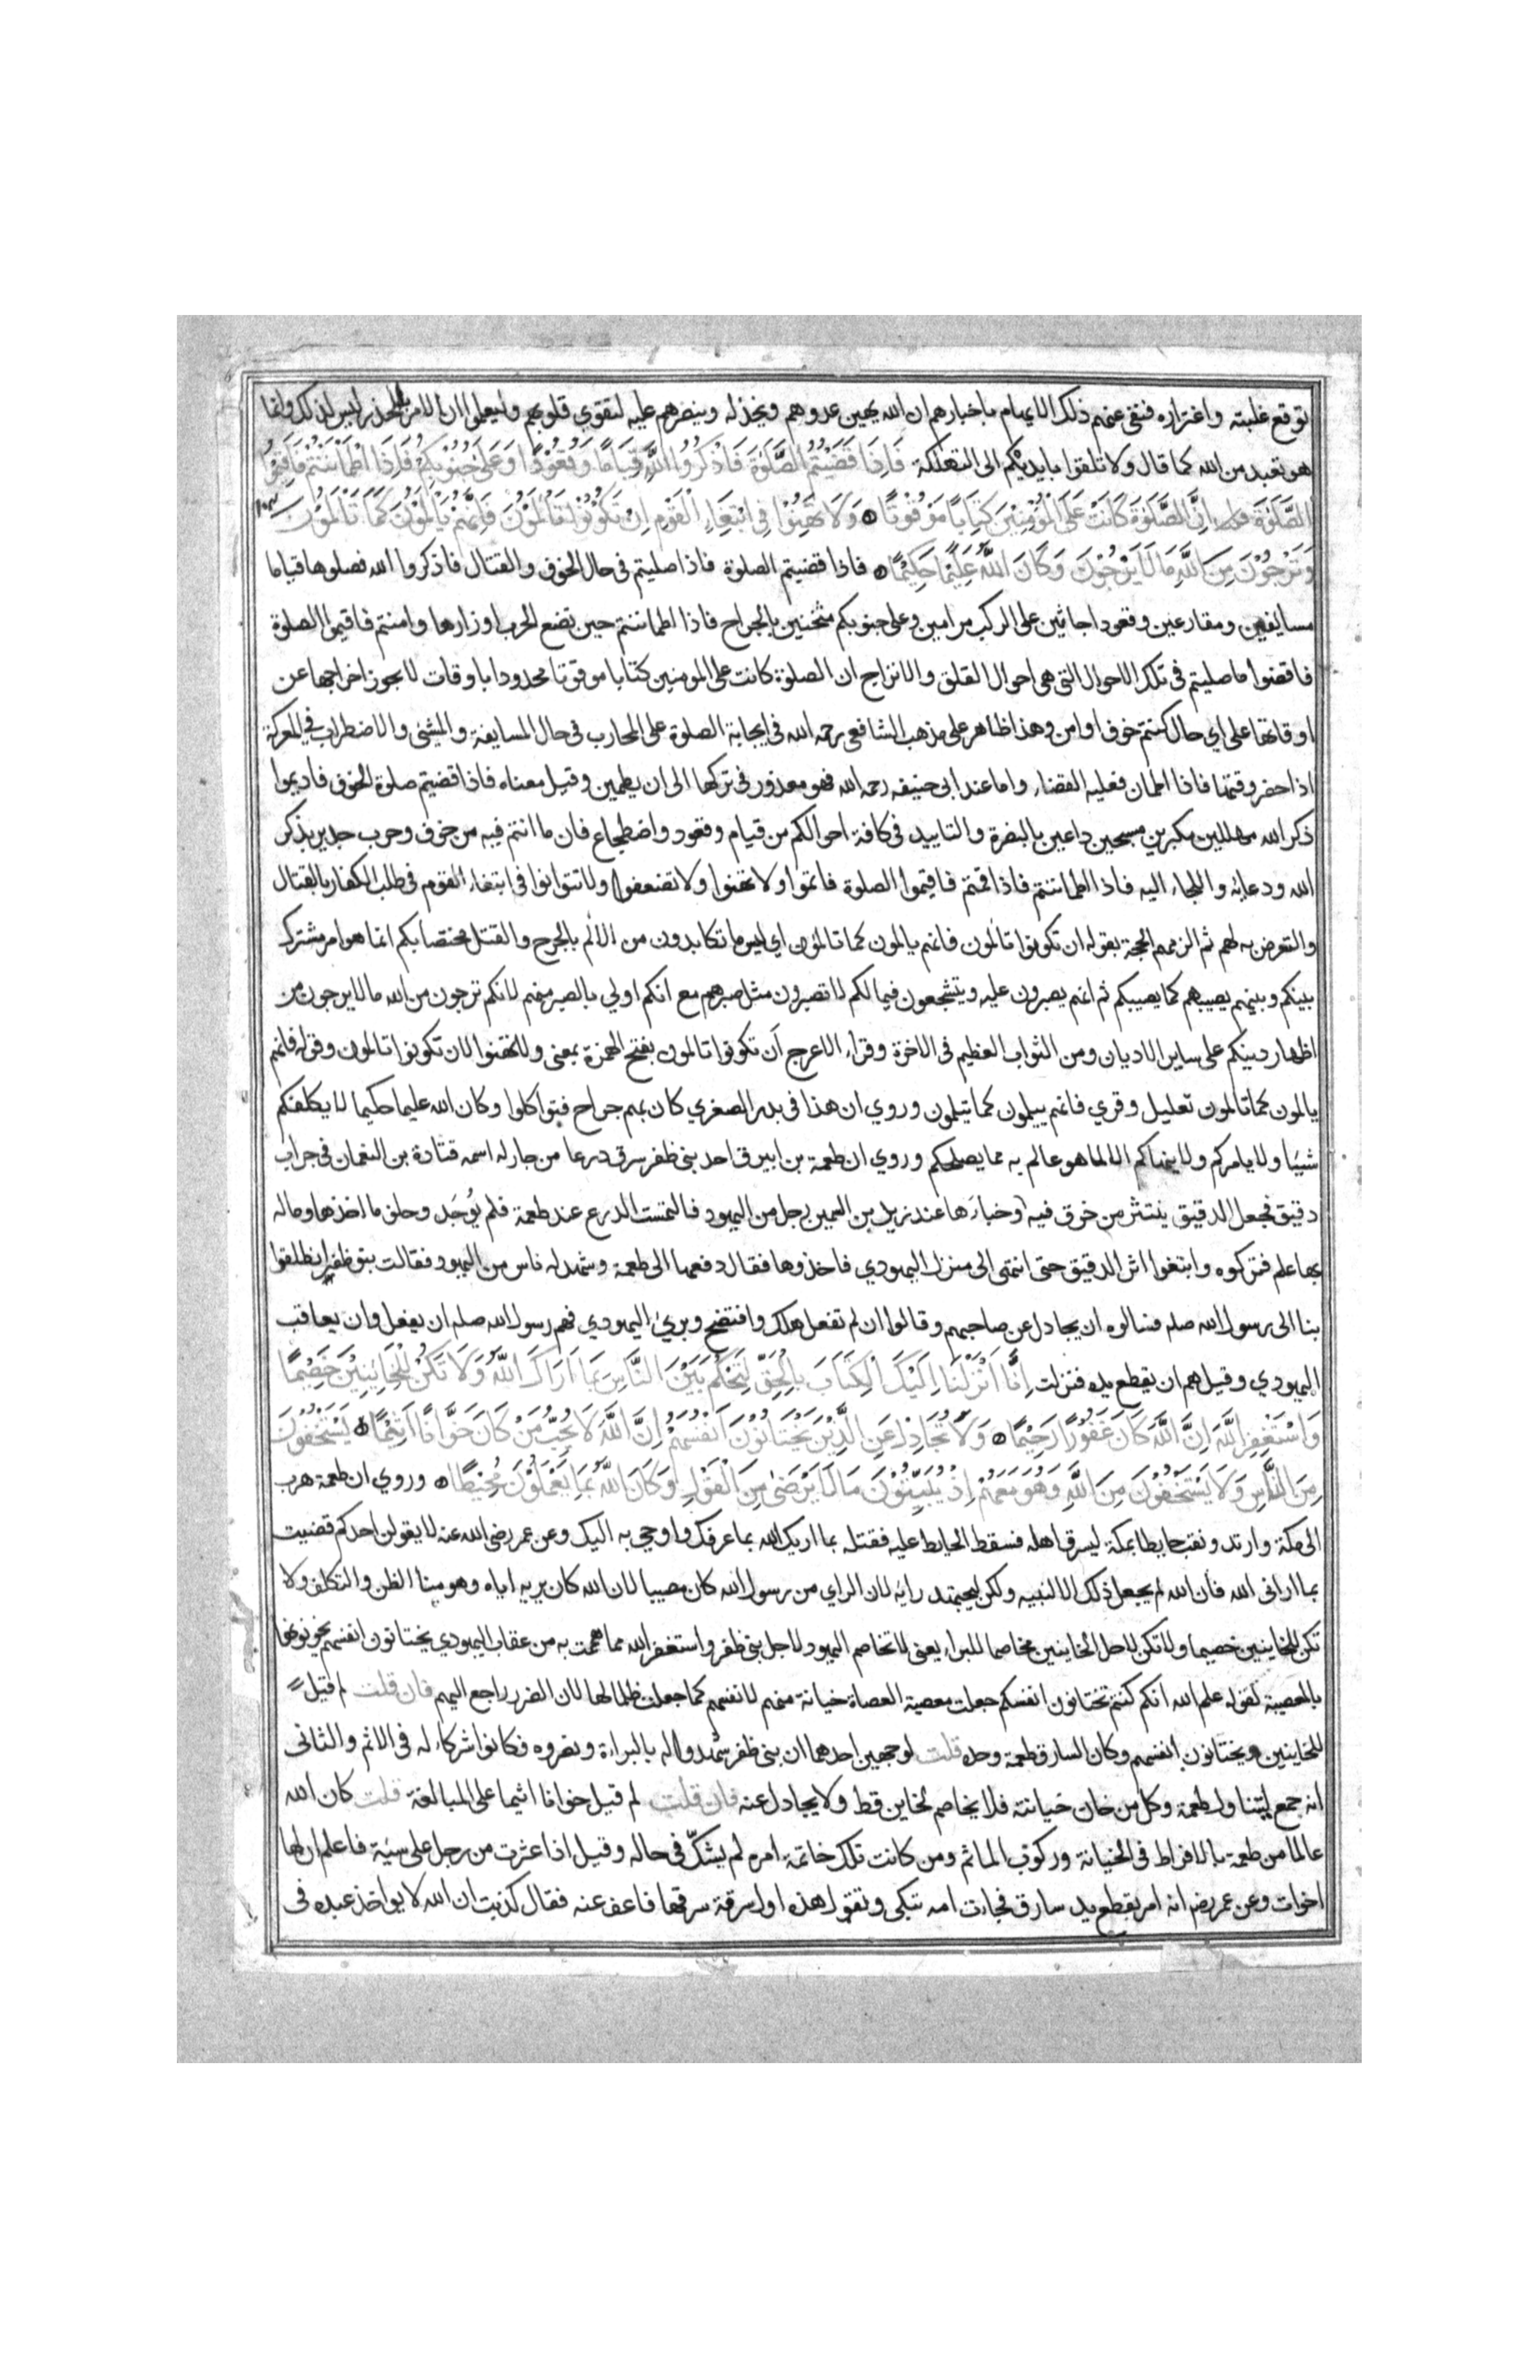 توقع غلبته واغتراره فنفى عنهم ذلك الايهام باخبارهم ان الله يهين عدوهم ويخذله وينصرهم عليه لتقوي قلوبهم وليعلموا ان الامر بالحذر ليس لذلك وانما
هو تعبد من الله كما قال ولا تلقوا بايديكم الى التهلكة فَاِذَا قَضَيْتُمُ الصَّلٰوةَ فَاذْكُرُوا اللَّهَ قِيَامًا وَقُعُودًا وَعَلٰى جُنُوبِكُمْ فَاِذَا اطْمَأْنَنْتُمْ فَاَقِيمُوا
الصَّلٰوةَ اِنَّ الصَّلٰوةَ كَانَتْ عَلَى الْمُؤْمِنِينَ كِتَابًا مَوْقُوتًا وَلَا تَهِنُوْا فِي ابْتِغَاءِ الْقَوْمِ اِنْ تَكُوْنُوْا تَأْلَمُوْنَ فَاِنَّهُمْ يَأْلَمُوْنَ كَمَا تَأْلَمُوْنَ
وَتَرْجُوْنَ مِنَ اللَّهِ مَا لَا يَرْجُوْنَ وَكَانَ اللَّهُ عَلِيْمًا حَكِيْمًا فاذا قضيتم الصلوة فاذا صليتم فى حال الخوف والقتال فاذكروا الله فصلوها قياما
مسايفين ومقارعين وقعودا جاثين على الركب مرامين وعلى جنوبكم مثخنين بالجراح فاذا اطماننتم حين تضع الحرب اوزارها وامنتم فاقيموا الصلوة
فاقضوا ما صليتم فى تلك الاحوال التى هى احوال القلق والانزاج ان الصلوة كانت على المومنين كتابا موقوتا محدودا باوقات لا يجوز اخراجها عن
اوقاتها على اي حال كنتم خوف او امن وهذا ظاهر على مذهب الشافعى رحمه الله فى ايجابه الصلوة على المحارب فى حال المسايفة والمشى والاضطراب فى المعركة
اذا حضر وقتها فاذا اطمان فعليه القضاء واما عند ابى حنيفه رحمه الله فهو معذور فى تركها الى ان يطمين وقيل معناه فاذا قضيتم صلوة الخوف فاديموا
ذكر الله مهللين مكبرين مسبحين داعين بالنصرة والتاييد فى كافة احوالكم من قيام وقعود واضطجاع فان ما انتم فيه من خوف وحرب جدير بذكر
الله ودعايه واللجاء اليه فاذا اطماننتم فاذا اقمتم فاقيموا الصلوة فاتموا ولا تهنوا ولا تضعفوا ولا تتوانوا فى ابتغاء القوم فى طلب الكفار بالقتال
والتعرض به لهم ثم الزمهم الحجة بقوله ان تكونوا تالمون فانهم يالمون كما تالمون اي ليس ما تكابدون من الالم بالجرح والقتل مختصا بكم انما هو امر مشترك
بينكم وبينهم يصيبهم كما يصيبكم ثم انهم يصبرون عليه ويتشجعون فيما لكم لا تصبرون مثل صبرهم مع انكم اولي بالصبر منهم لانكم ترجون من الله ما لا يرجون من
اظهار دينكم على ساير الاديان ومن الثواب العظيم فى الاخرة وقراء الاعرج اَن تكونوا تالمون بفتح الهمزة بمعنى ولا تهنوا لان تكونوا تالمون وقوله فانهم
يالمون كما تالمون تعليل وقري فانهم ييلمون كما تيلمون وروي ان هذا فى بدر الصغري كان بهم جراح فتواكلوا وكان الله عليما حكيما لا يكلفكم
شييا ولا يامركم ولا ينهاكم الا لما هو عالم به مما يصلحكم وروي ان طعمة بن ابيرق احد بنى ظفر سرق درعا من جار له اسمه قتادة بن النعمان فى جراب
دقيق فجعل الدقيق ينتثر من خرق فيه وخباَرَها عند زيد بن السمين رجل من اليهود فالتمست الدرع عند طعمة فلم يُوجَد وحلف ما اخذها وماله
بها علم فتركوه واتبعوا اثر الدقيق حتى انتهى الى منزل اليهودي فاخذوها فقال دفعها الى طعمة وشهد له ناس من اليهود فقالت بنو ظفر انطلقوا
بنا الى رسول الله صلم فسالوه ان يجادل عن صاحبهم وقالوا ان لم تفعل هلك وافتضح وبرئ اليهودي فهم رسول الله صلم ان يفعل وان يعاقب
اليهودي وقيل هم ان يقطع يده فنزلت اِنَّا اَنْزَلْنَا اِلَيْكَ الْكِتَابَ بِالْحَقِّ لِتَحْكُمَ بَيْنَ النَّاسِ بِمَا اَرَاكَ اللَّهُ وَلَا تَكُنْ لِلْخَائِنِيْنَ خَصِيْمًا
وَاسْتَغْفِرِ اللَّهَ اِنَّ اللَّهَ كَانَ غَفُوْرًا رَحِيْمًا وَلَا تُجَادِلْ عَنِ الَّذِيْنَ يَخْتَانُوْنَ اَنْفُسَهُمْ اِنَّ اللَّهَ لَا يُحِبُّ مَنْ كَانَ خَوَّانًا اَثِيْمًا يَسْتَخْفُوْنَ
مِنَ النَّاسِ وَلَا يَسْتَخْفُوْنَ مِنَ اللَّهِ وَهُوَ مَعَهُمْ اِذْ يُبَيِّتُوْنَ مَا لَا يَرْضٰى مِنَ الْقَوْلِ وَكَانَ اللَّهُ بِمَا يَعْمَلُوْنَ مُحِيْطًا وروي ان طعمة هرب
الى مكة وارتد ونقب حايطا بمكة ليسرق اهله فسقط الحايط عليه فقتله بما اريك الله بما عرفك واوحي به اليك وعن عمر رضى الله عنه لا يقولن احدكم قضيت
بما ارانى الله فان الله لم يجعل ذلك الا لنبيه ولكن ليجتهد رايه لان الراي من رسول الله كان مصيبا لان الله كان يريه اياه وهو منا الظن والتكلف ولا
تكن للخاينين خصيما ولا تكن لاجل الخاينين مخاصما للبراء يعنى لا تخاصم اليهود لاجل بنى ظفر واستغفر الله مما هممت به من عقاب اليهودي يختانون انفسهم يخونونها
بالمعصية كقوله علم الله انكم كنتم تختانون انفسكم جعلت معصية العصاة خيانة منهم لانفسهم كما جعلت ظلما لها لان الضرر راجع اليهم فان قلت لم قيل
للخاينين ويختانون انفسهم وكان السارق طعمة وحده قلت لوجهين احدهما ان بنى ظفر شهدوا له بالبراءة ونصروه فكانوا شركاء له فى الاثم والثانى
انه جمع ليتناول طعمة وكل من خان خيانته فلا يخاصم لخاين قط ولا يجادل عنه فان قلت لم قيل خوانا اثيما على المبالغة قلت كان الله
عالما من طعمة بالافراط فى الخيانة وركوب الماثم ومن كانت تلك خاتمة امره لم يشكّ فى حاله وقيل اذا عثرت من رجل على سيّة فاعلم ان لها
اخوات وعن عمر رضه انه امر بقطع يد سارق فجاءت امه تبكى وتقول هذه اول سرقة سرقها فاعف عنه فقال كذبت ان الله لا يواخذ عبده فى